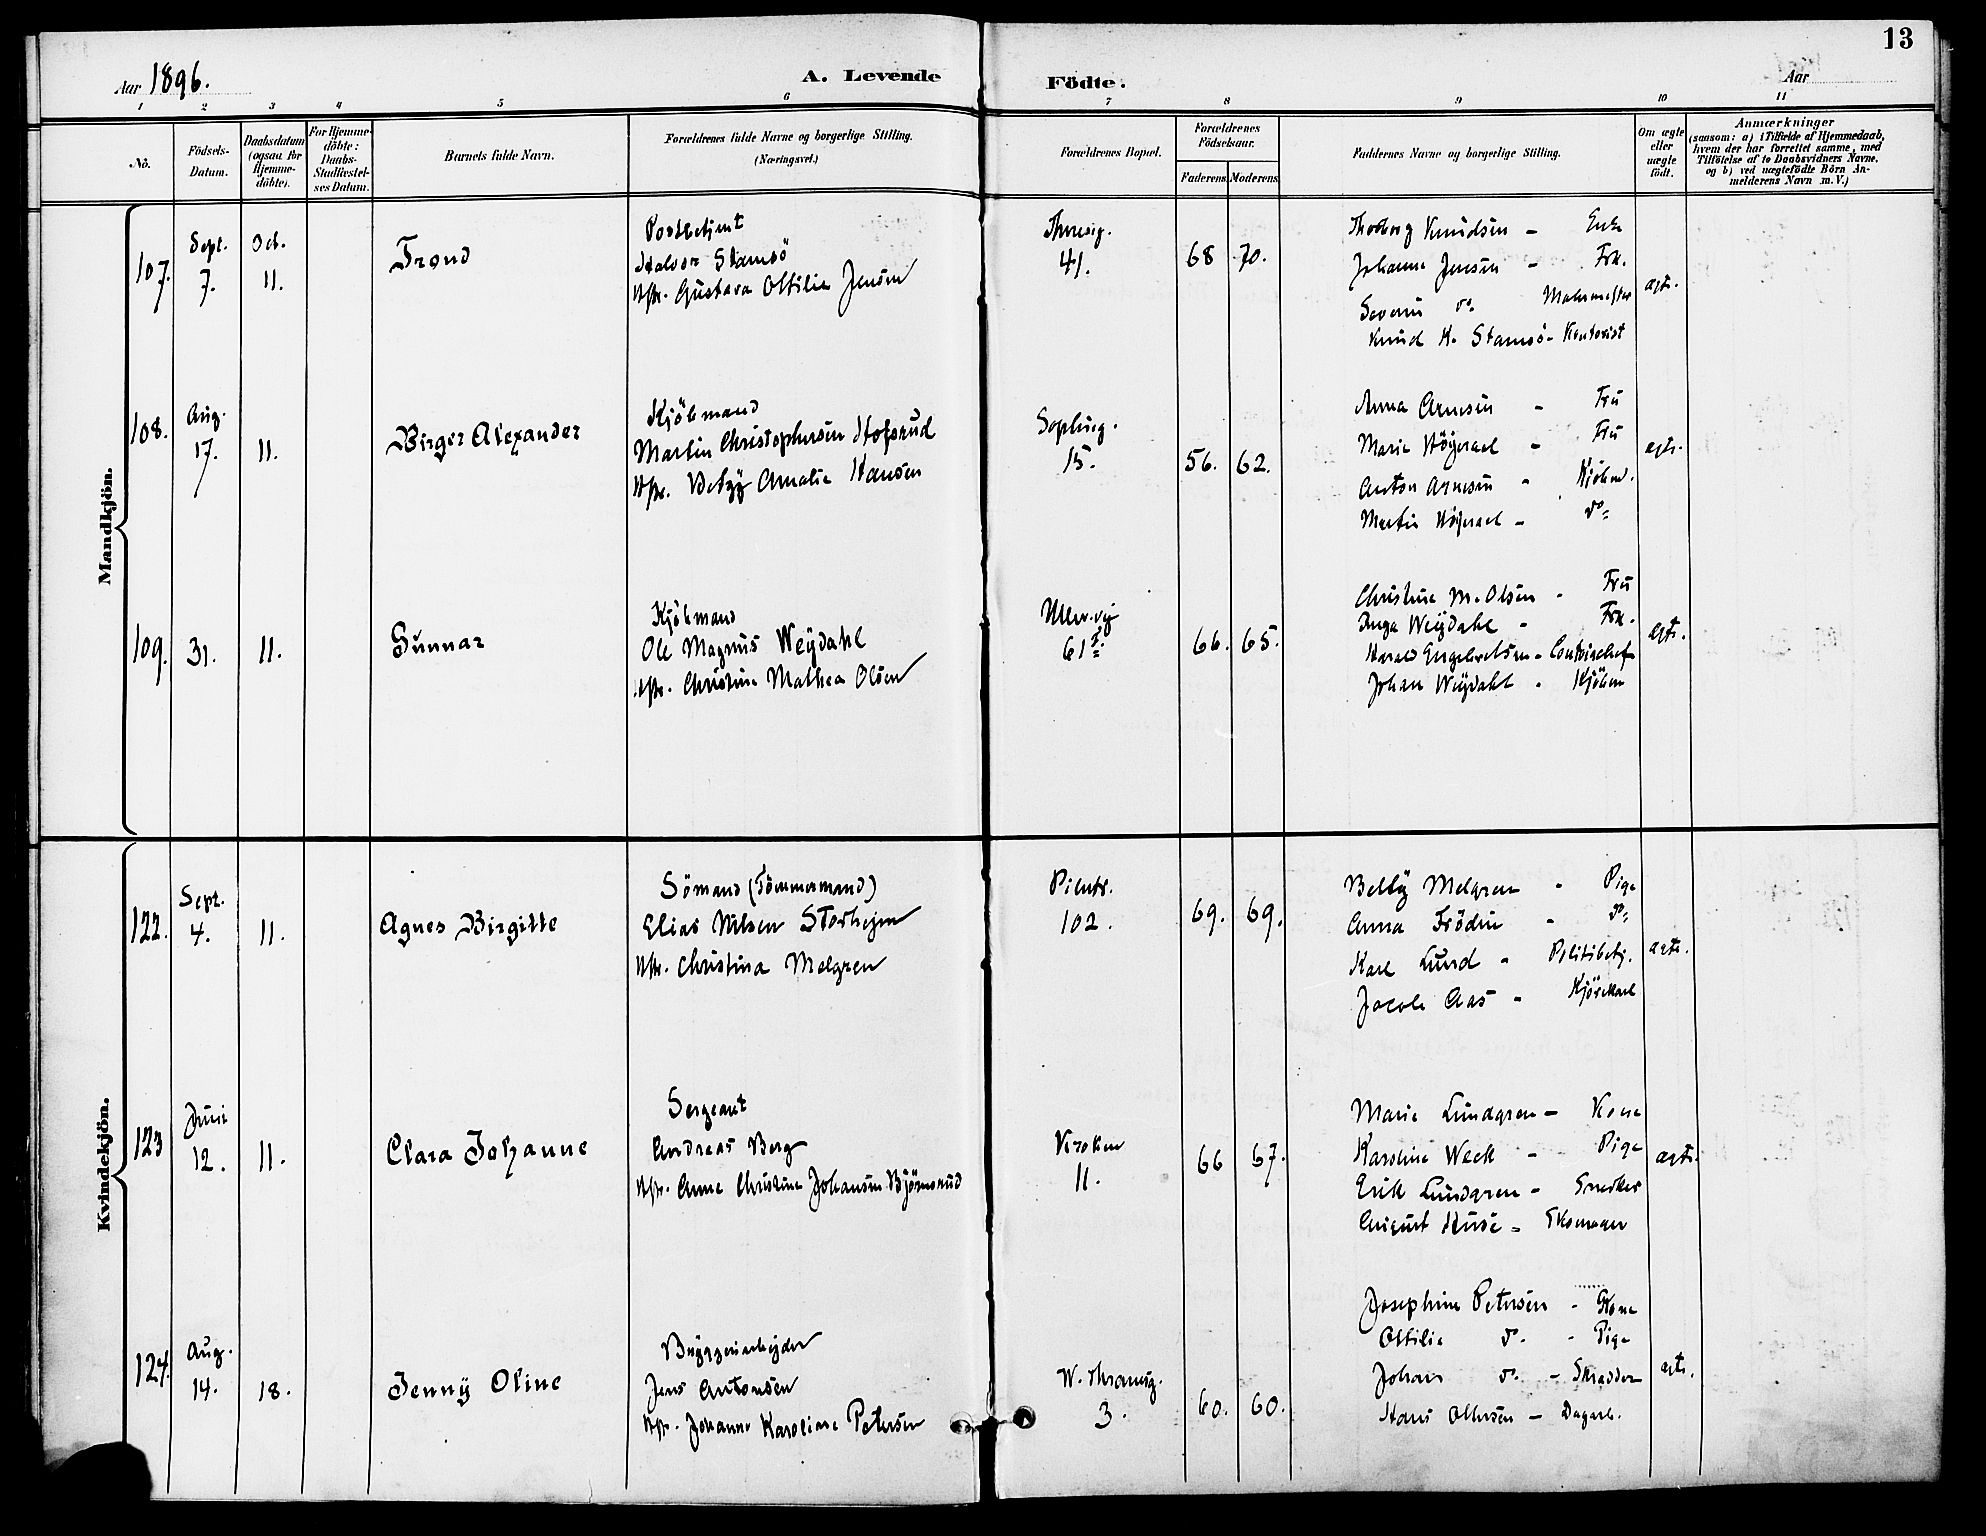 13
Aar 1896.
A. Levende
Födte.
Aar
1 2 3 4 5 6 7 8 9 10 11
No.
Födsels-
Datum.
Daabsdatum
(ogsaa for
Hjemme-
döbte).
For Hjemme-
döbte:
Daabs-
Stadfæstel-
ses Datum.
Barnets fulde Navn.
Forældrenes fulde Navne og borgerlige Stilling.
(Næringsvei.)
Forældrenes Bopæl.
Forældrenes
Födselsaar.
Faderens. Moderens.
Faddernes Navne og borgerlige Stilling.
Om ægte
eller
uægte
födt.
Anmærkninger
(saasom: a) i Tilfælde af Hjemmedaab,
hvem der har forrettet samme, med
Tilföielse af to Daabsvidners Navne,
og b) ved uægtefödte Börn An-
melderens Navn m. V.)
Mandkjön.
107.
Sept.
7.
Oct.
11.
Trond
Postbetjent
Halvor Stamsö
Hstr. Gustava Ottilia Jensen
Thereseg.
41.
68 70.
Thorborg Knudsen - Enke
Johanne Jensen - Frk.
Severin do. Malermester
Knud H. Stamsö - Kontorist
ægte.
108.
Aug.
17.
11.
Birger Alexander
Kjöbmand
Martin Christophersen Hofsrud
Hstr. Betzy Amalie Hansen
Sophieg.
15.
56. 62.
Anna Arnesen - Fru
Marie Höyerael - Fru
Anton Arnesen - Kjöbmd.
Martin Höyerael - do
ægte.
109.
31.
11.
Gunnar
Kjöbmand
Ole Magnus Weydahl
Hstr. Christine Mathea Olsen
Ullev.vej
61
66. 65.
Christine M. Olsen - Fru
Inga Weydahl - Frk.
Harald Engebretsen - Contorchef
Johan Weydahl - Kjöbm
ægte.
Kvindekjön.
122.
Sept.
4.
11.
Agnes Birgitte
Sömand (Tömmermand)
Elias Nilsen Storhejm
Hstr. Christina Melgren
Pilestr.
102.
69. 69.
Betty Melgren - Pige
Anna Frödin - do
Karl Lund - Politibetj.
Jacob Aas - Kjörekarl
ægte.
123
Juni
12.
11.
Clara Johanne
Sergeant
Andreas Berg
Hstr. Anne Christine Johansen Björnsrud
Kroken
11.
66 67.
Marie Lundgren - Kone
Karoline Weck - Pige
Erik Lundgren - Snedker
August Huse - Skomager
ægte.
124.
Aug.
14.
18.
Jenny Oline
Bryggeriarbejder
Jens Antonsen
Hstr. Johanne Karoline Petersen
W. Thranesg.
3.
60. 60.
Josephine Petersen - Kone
Ottilie do. - Pige
Johan do. - Skrædder
Hans Ottersen - Dagarb.
ægte.